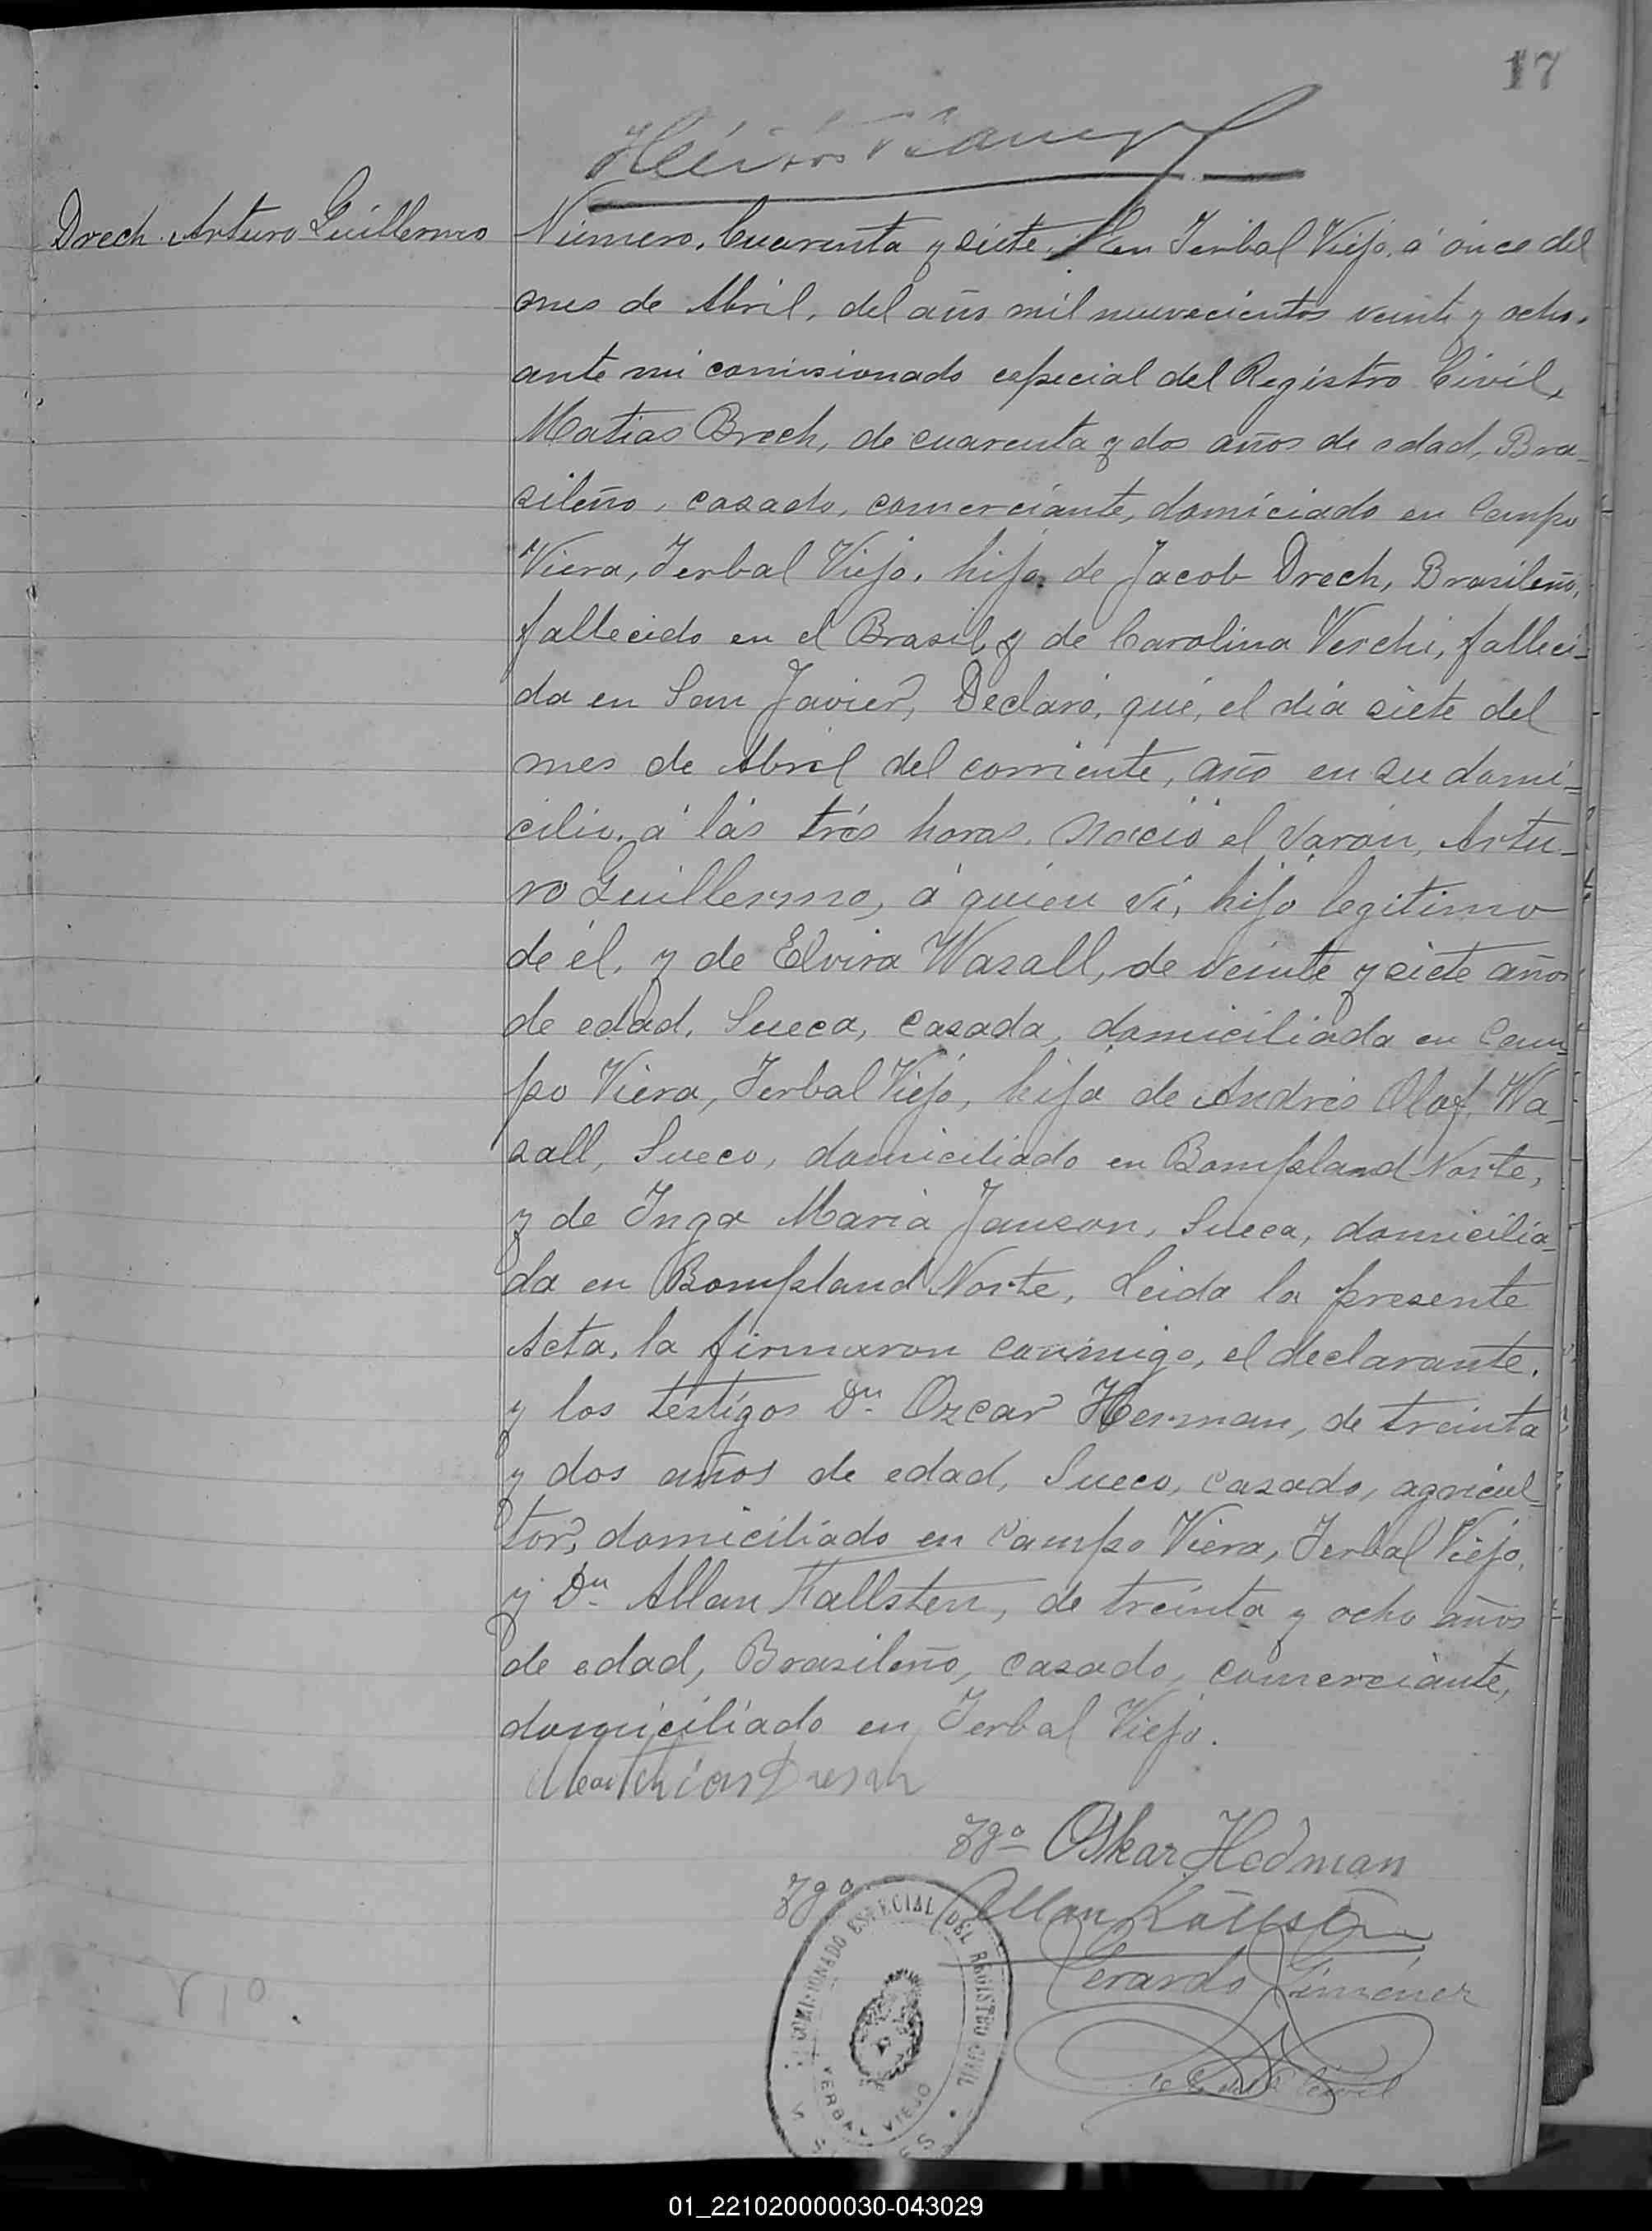 17
Drech Arturo Guillermo
Número, Cuarenta y siete. En Yerbal Viejo, á ónce del
mes de Abril, del año mil nuevecientos veinte y ocho,
ante mi comisionado especial del Registro Civil,
Matias Brech, de cuarenta y dos años de edad, Bra-
sileño, casado, comerciante, domiciado en Campo
Viera, Yerbal Viejo, hijo de Jacob Drech, Brasileño,
fallecido en el Brasil, y de Carolina Verchi, falleci-
da en San Javier, Declaró, qué, el día siete del
mes de Abril del corriente, año en su domi-
cilio, á las trés horas, nació el varón, Artu-
ro Guillermo, á quien ví, hijo legitimo
de él, y de Elvira Wasall, de veinte y siete años
de edad, Sueca, casada, domiciliada en Cam-
po Viera, Yerbal Viejo, hija de Andrés Olaf, Wa-
sall, Sueco, domiciliado en Bompland Norte,
y de Inga Maria Janson, Sueca, domicilia-
da en Bompland Norte, Leida la presente
Acta, la firmaron conmigo, el declarante,
y los testigos Dn. Ozcar Herman, de treinta
y dos años de edad, Sueco, casado, agricul-
tor, domiciliado en Campo Viera, Yerbal Viejo,
y Dn. Allan Kallsten, de treinta y ocho años
de edad, Brasileño, casado, comerciante,
domiciliado en Yerbal Viejo.
Mathias Dresch
Tgo Oskar Hedman
Tgo Allan Källsten
Gerardo Giménez
COMISIONADO ESPECIAL DEL REGISTRO CIVIL
YERBAL VIEJO
01_221020000030-043029